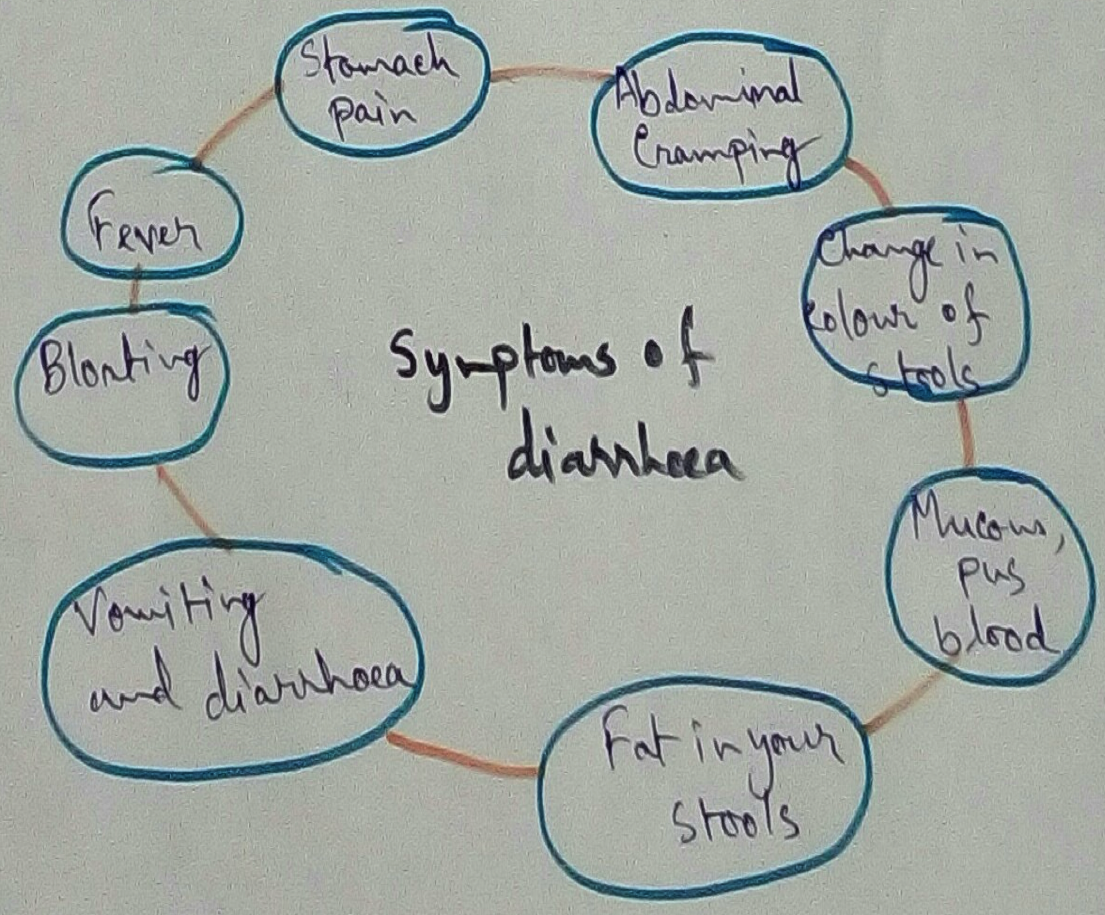 Stomach
pain
Abdominal
Cramping
Change in
colour of
stools
Mucous,
pus
blood
Fat in your
stools
Vomiting
and diarrhoea
Bloating
Fever
Symptoms of
diarrhoea